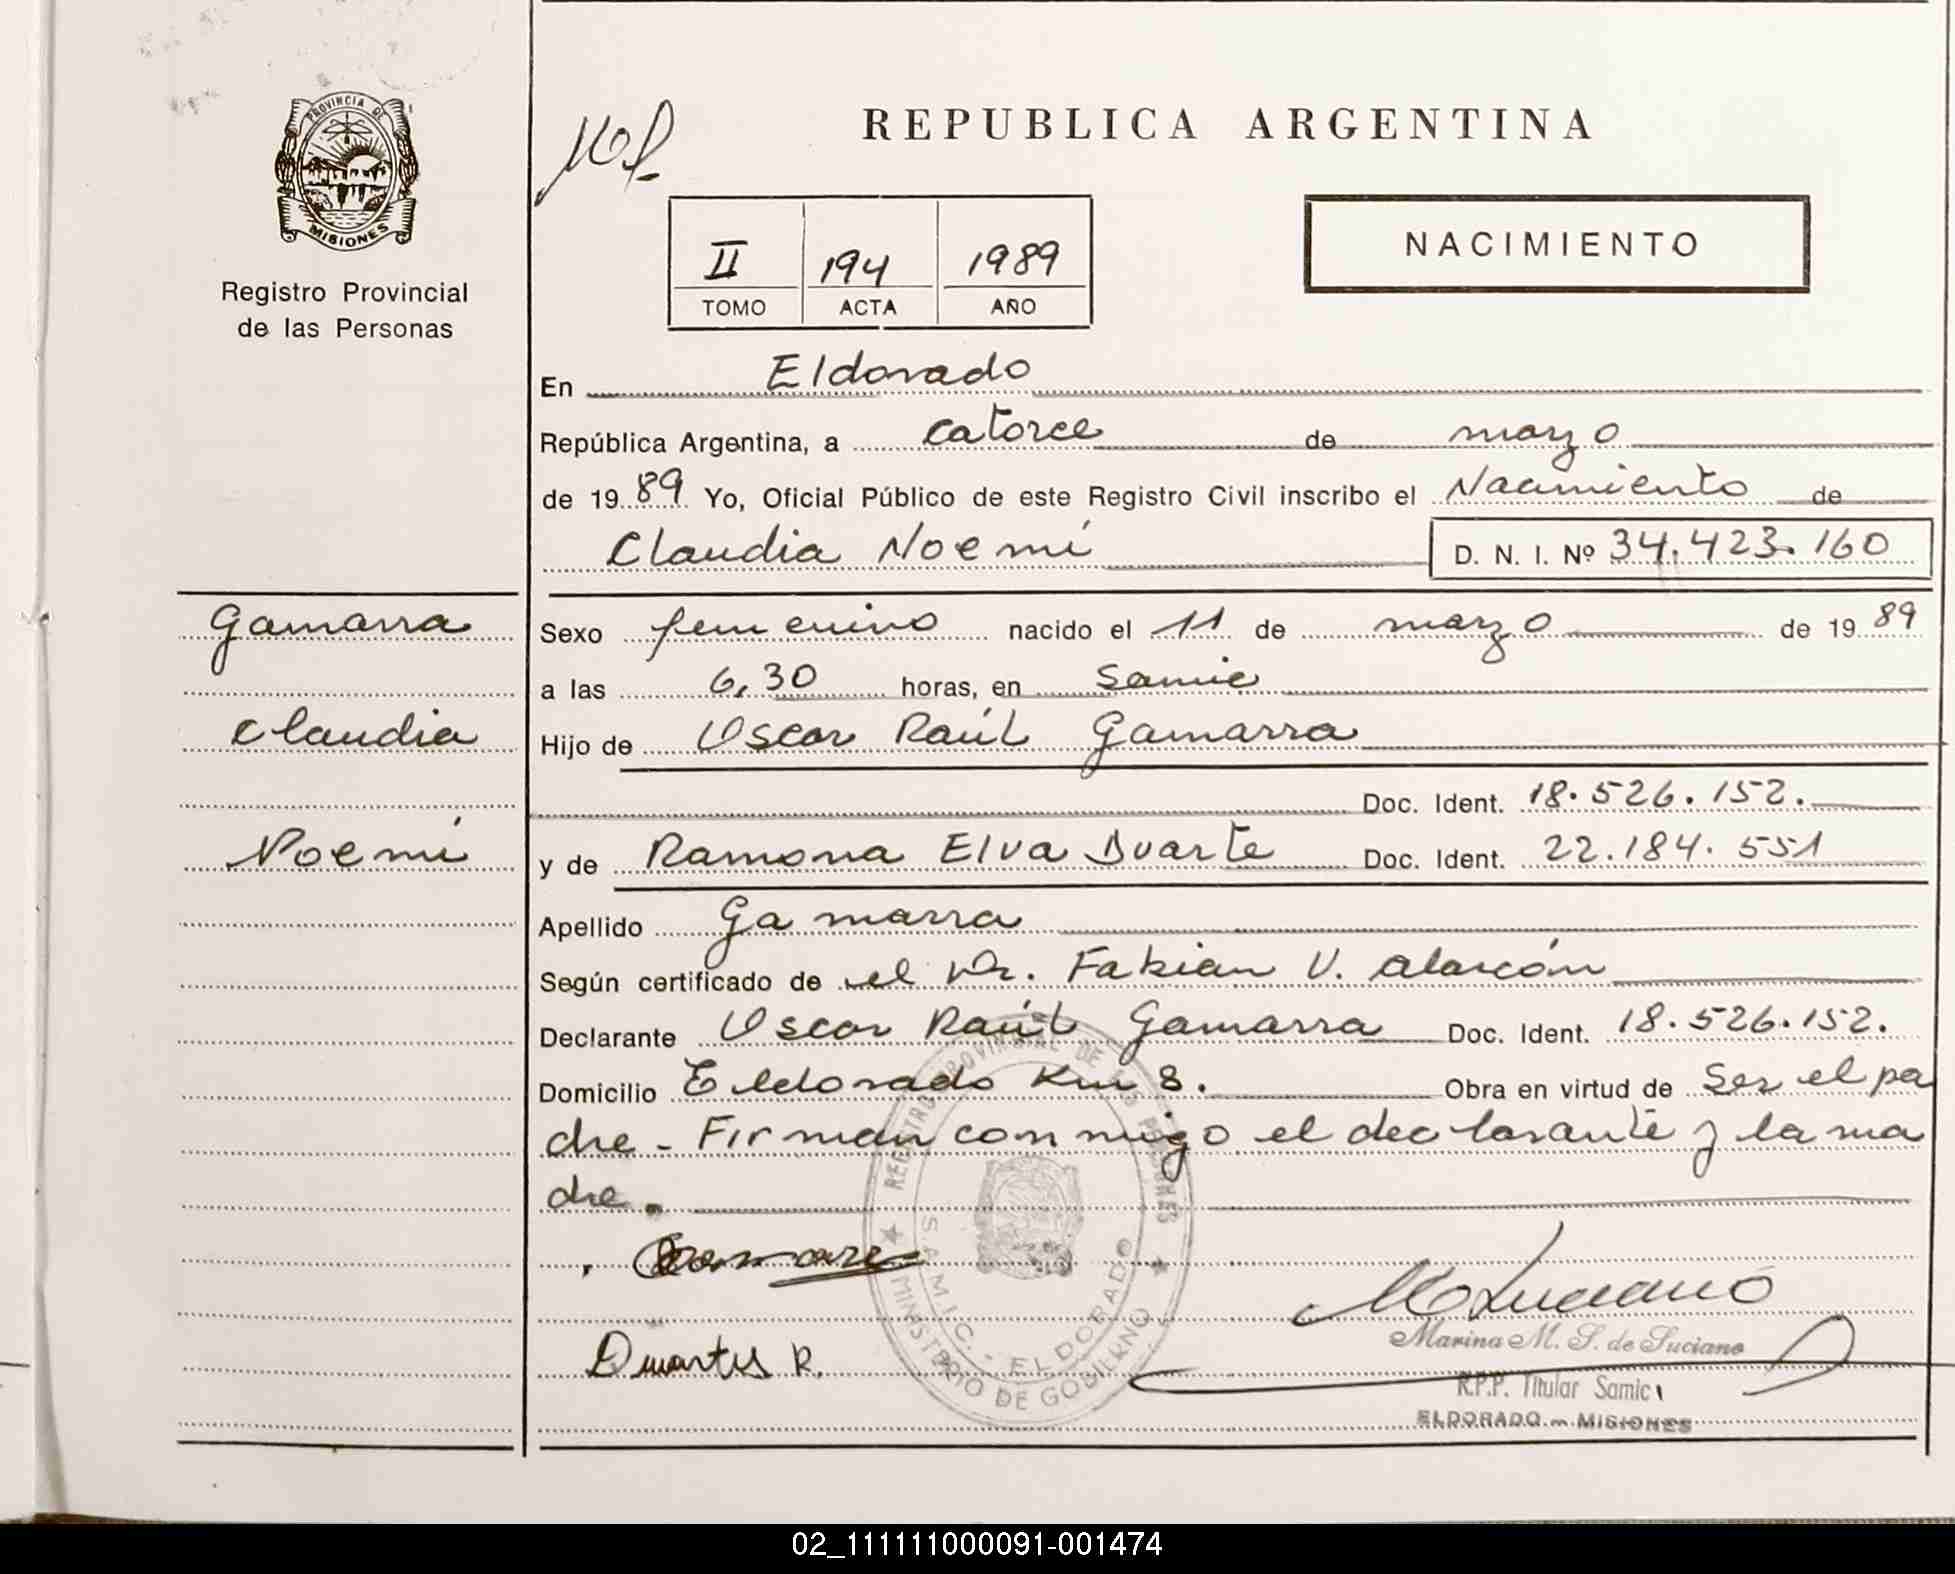 PROVINCIA DE
MISIONES
Registro Provincial
de las Personas
REPUBLICA ARGENTINA
II 194 1989
TOMO ACTA AÑO
NACIMIENTO
En Eldorado
República Argentina, a catorce de marzo
de 19 89 Yo, Oficial Público de este Registro Civil inscribo el Nacimiento de
Claudia Noemí D. N. I. Nº 34.423.160
Gamarra
Claudia
Noemí
Sexo femenino nacido el 11 de marzo de 19 89
a las 6,30 horas, en Samic
Hijo de Oscar Raúl Gamarra
Doc. Ident. 18.526.152.
y de Ramona Elva Duarte Doc. Ident. 22.184.551
Apellido Gamarra
Según certificado de el Dr. Fabian V. Alarcón
Declarante Oscar Raúl Gamarra Doc. Ident. 18.526.152.
Domicilio Eldorado Km 8. Obra en virtud de Ser el pa
dre - Firman conmigo el declarante y la ma
dre.
REGISTRO PROVINCIAL DE LAS PERSONAS
S.A.M.I.C. - ELDORADO
MINISTERIO DE GOBIERNO
Duartes R.
Marina M. S. de Luciano
R.P.P. Titular Samic
ELDORADO - MISIONES
02_111111000091-001474